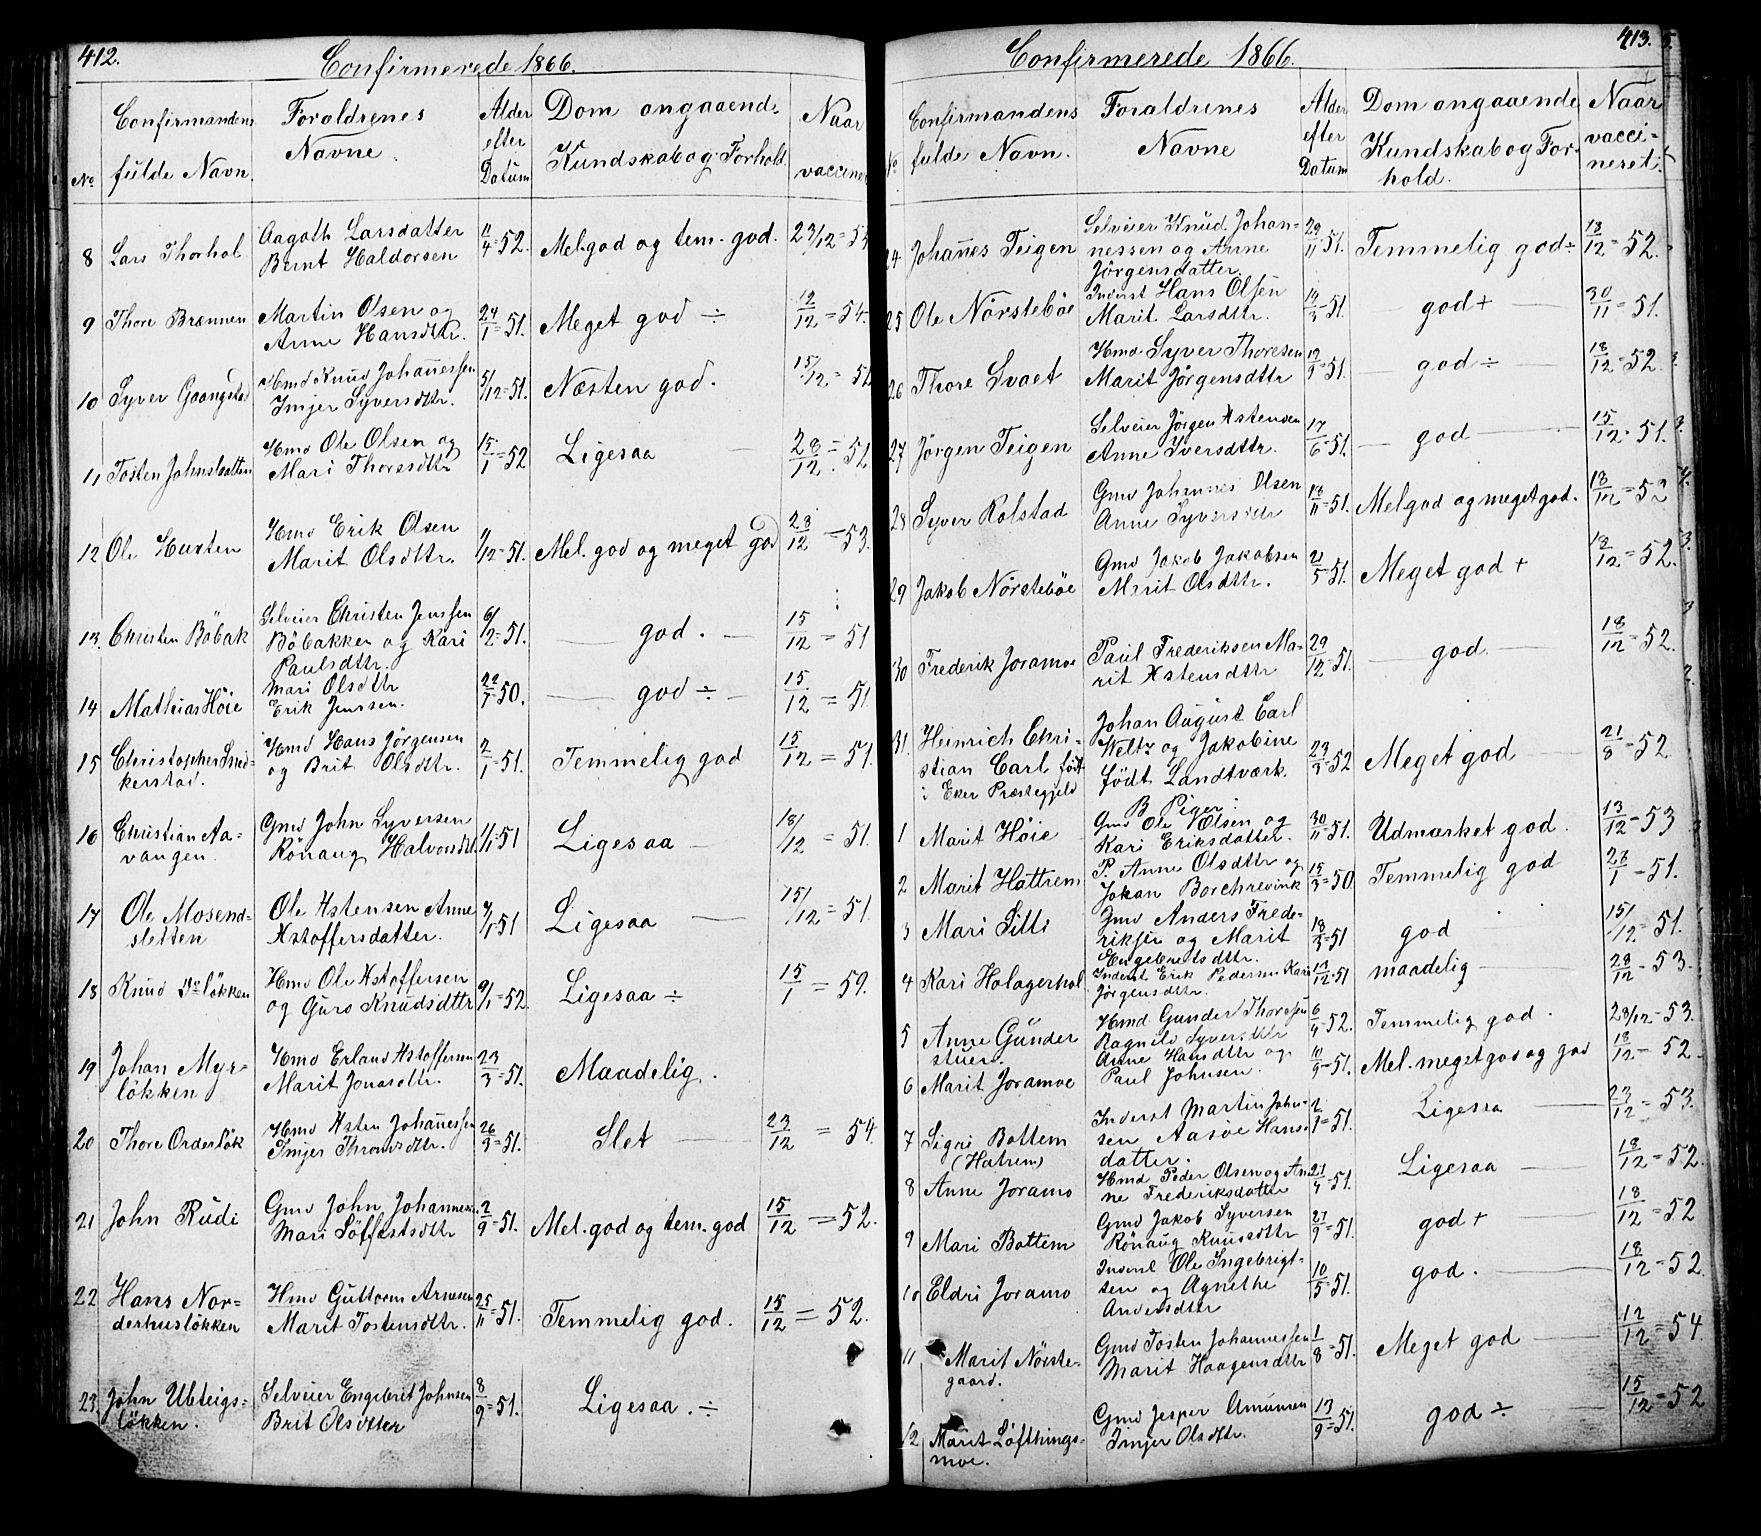 412.
Confirmerede 1866.
No
Confirmandens
fulde Navn.
Foraldrenes
Navne.
Alder
efter
Datum
Dom angaaende
Kundskab og Forhold
Naar
vaccineret
8 Lars Thorhol
Aagoth Larsdatter
Bernt Haldorsen
11/4=52.
Mel. god og tem. god.
9 Thore Brønnen
Martin Olsen og
Anne Hansdttr.
24/1=51.
Meget god ÷
12/12=54.
10 Syver Gaangstad
Hmd Knud Johannessen
Imjer Syversdttr.
5/12=51.
Næsten god.
15/12=52
11 Tosten Johnsletten
Hmd Ole Olsen og
Mari Thoresdttr
15/1=52
Ligesaa
28/12=52
12 Ole Hurten
Hmd Erik Olsen
Marit Olsdttr.
Mel. god og meget god
28/12=53.
13. Christen Böbak
Selveier Christen Jenssen
Böbakken og Kari
Paulsdttr.
6/2=51.
— god. —
15/12=51
14 Mathias Höie
Mari Olsdttr
Erik Jenssen.
22/7=50.
— god ÷ —
15/12=51
15 Christopher Smi-
kerstad.
Hmd Hans Jörgensen
og Brit Olsdttr.
2/1=51.
Temmelig god
15/12=51.
16 Christian Aa-
vangen.
Gmd John Syversen
Rönaug Halvorsdttr
Ligesaa —
18/12=51.
17 Ole Mosend-
sletten
Ole Astensen Anne
Astoffersdatter.
Ligesaa —
15/12=51.
18 Knud Do lökken
Hmd Ole Astoffersen
og Guro Knudsdttr
9/1=52.
Ligesaa ÷
15/1=59.
19 Johan Myr-
lökken
Hmd Erland Astoffersen
Marit Jonasdttr.
23/3=51.
Maadelig.
20 Thore Orderlök
Hmd Asten Johannessen
Imjer Thronsdttr.
26/3=51.
Slet —
23/12=54.
21 John Rudi
Gmd John Johannesen
Mari Löffastsdttr
2/9=51.
Mel. god og tem. god
15/12=52.
22 Hans Nor-
derhuslökken
Hmd Guttorm Arnesen
Marit Tostensdttr.
25/11=51.
Temmelig god.
15/12=52.
23. John Ubteigs-
lökken.
Selveier Engebret Johnsen
Brit Olsdtter
8/9=51.
Ligesaa. ÷
413.
Confirmerede 1866.
No
Confirmandens
fulde Navn.
Foraldrenes
Navne
Alder
efter
Datum
Dom angaaende
Kundskab og For-
hold.
Naar
vacci-
neret.
24 Johannes Teigen
Selveier Knud Johan-
nessen og Anne
Jörgensdatter.
29/11=51.
Temmelig god ÷
18/12=52.
25 Ole Nörsteböe
Inderst Hans Olsen
Marit Larsdttr.
— god + —
30/11=51.
26 Thore Svaet
Hmd. Syver Thoresen
Marit Jörgensdttr
12/9=51.
— god ÷ —
18/12=52
27 Jörgen Teigen
Selveier Jörgen Astensen
Anne Iversdttr.
17/6=51.
— god —
15/12=51.
28 Syver Rolstad
Gmd Johannes Olsen
Anne Syversdttr
18/11=51.
Mel god og meget god.
29 Jakob Nörsteböe
Gmd Jakob Jakobsen
Marit Olsdttr.
21/5=51.
Meget god +
18/12=52.
30 Frederik Joramoe
Paul Frederiksen Ma-
rit Astensdttr
29/12=51.
— god —
18/12=52.
31. Heinrich Chri-
stian Carl født
i Eker Præstegjeld
Johan August Carl
Weltz og Jakobine
født Landtværk.
23/3=52
Meget god
21/8=52.
B Piger:
1 Marit Höie
Gmd Ole Olsen og
Kari Eriksdatter.
30/11=51.
Udmærket god.
13/12=53
2 Marit Hattrem
P. Anne Olsdttr og
Johan Borchrevink
15/3=50.
Temmelig god
28/1=51.
3 Mari Silli
Gmd Anders Frede-
riksen og Marit
Engebretsdttr.
18/3=51
god
15/12=51.
4 Kari Holagerhol
Inderst Erik Pedersen Kari
Jörgensdttr.
13/12=51
maadelig —
28/12=53.
5 Anne Gunder
stuen.
Hmd. Gunder Thoresen
Ragnild Syversdttr
6/4=52.
Temmelig god.
23/12=53.
6 Marit Joramoe
Anne Hansdttr og
Paul Johnsen.
10/9=51.
Mel. meget god og god
18/12=52
7 Sigri Bottem
(Hatrem)
Inderst Martin John-
sen Aasöe Hans-
datter.
Ligesaa —
23/12=53.
8 Anne Joramo
Hmd Peder Olsen og An-
ne Frederiksdatter
21/4=51.
Ligesaa —
18/12=52.
9 Mari Bottem
Gmd Jakob Syversen
Rönaug Knudsdttr
27/9=51.
god + —
18/12=52
10 Eldri Joramo
Inderst Ole Ingebrigt-
sen og Agnethe
Andersdttr
10/5=51.
god. —
18/12=52.
11 Marit Nörste-
gaard.
Gmd Tosten Johannessen
Marit Haagensdttr
1/8=51.
Meget god —
12/12=54
12 Marit Löfthings-
moe.
Gmd Jesper Amunsen
Imjer Olsdttr.
13/9=51.
god ÷ —
15/12=52